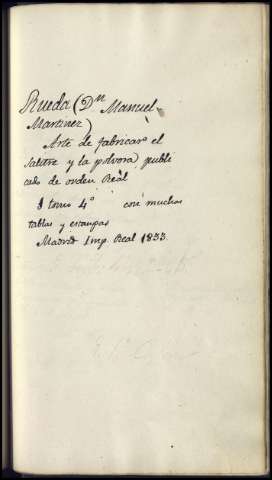 Rueda (Dn Manuel
Martinez)
Arte de fabricar el
Salitre y la polvora, publi
cado de orden Real
1 tomo 4º con muchas
tablas y estampas
Madrid Imp. Real 1833.